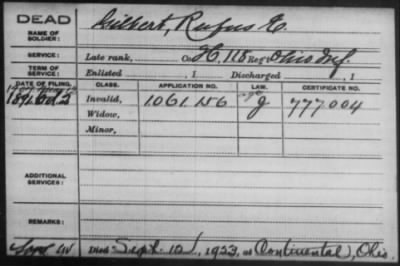 DEAD
NAME OF SOLDIER: Gilbert, Rufus E.
SERVICE: Late rank, Co. H, 118 Reg't Ohio Inf.
TERM OF SERVICE: Enlisted , 1 Discharged , 1
DATE OF FILING. CLASS. APPLICATION NO. LAW. CERTIFICATE NO.
1891 Oct 5 Invalid, 1.061.156 J 777.004
Widow,
Minor,
ADDITIONAL SERVICES:
REMARKS:
Died Sept. 10, 1923, at Continental, Ohio.